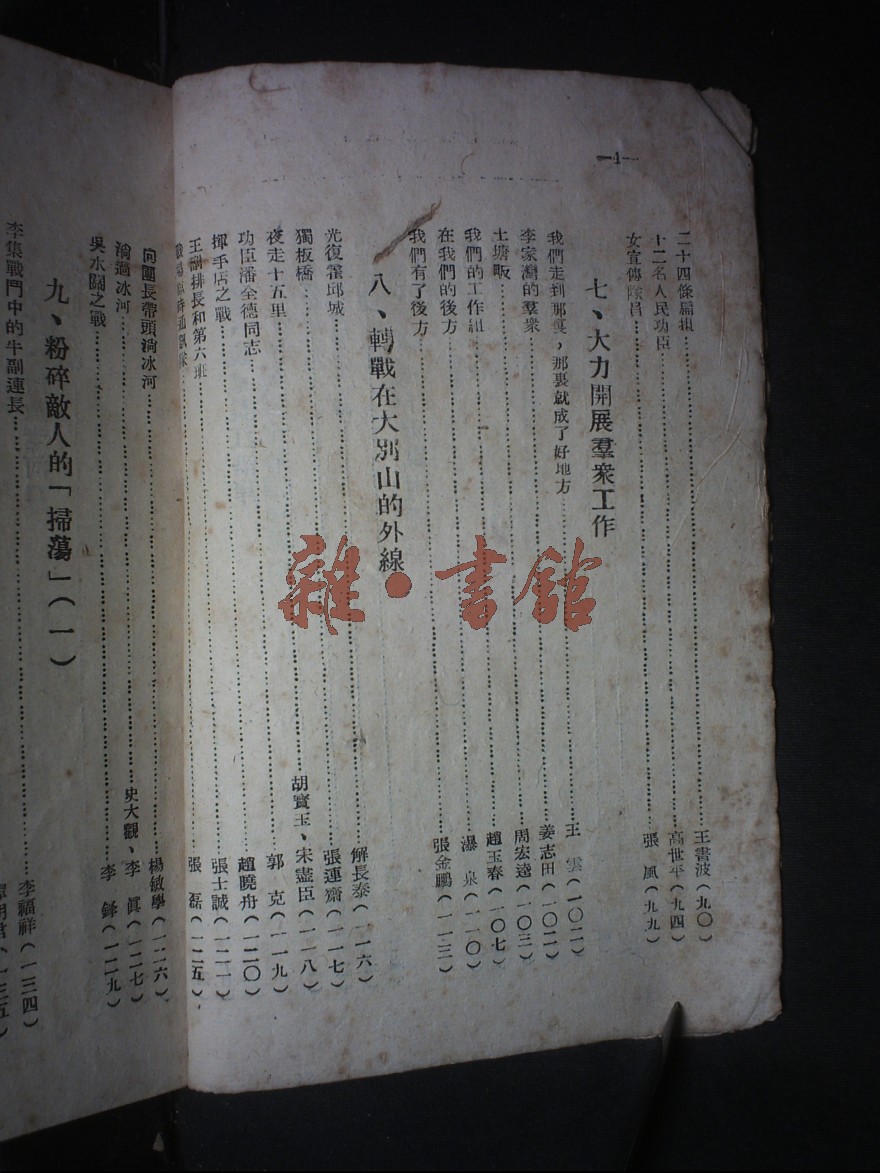 —4—
二十四條扁担……王書波(九〇)
十二名人民功臣……高世平(九四)
女宣傳隊員……張風(九九)
七、大力開展羣衆工作
我們走到那裏，那裏就成了好地方……王雲(一〇二)
李家灣的羣衆……姜志田(一〇二)
土塘畈……周宏達(一〇三)
我們的工作組……趙玉春(一〇七)
在我們的後方……瀑泉(一一〇)
我們有了後方……張金鵬(一一三)
八、轉戰在大別山的外線
光復霍邱城……解長泰(一一六)
獨板橋……張連齋(一一七)
夜走十五里……胡寶玉、宋藎臣(一一八)
功臣潘全德同志……郭克(一一九)
揮手店之戰……趙曉舟(一二〇)
王酬排長和第六班……張士誠(一二一)
臨時……張磊(一二五)
向團長帶頭淌冰河……楊敏學(一二六)
淌過冰河……史大觀、李眞(一二七)
吳水關之戰……李鋒(一二九)
九、粉碎敵人的「掃蕩」(一)
李集戰鬥中的牛副連長……李福祥(一三四)
(一三五)
雜·書館